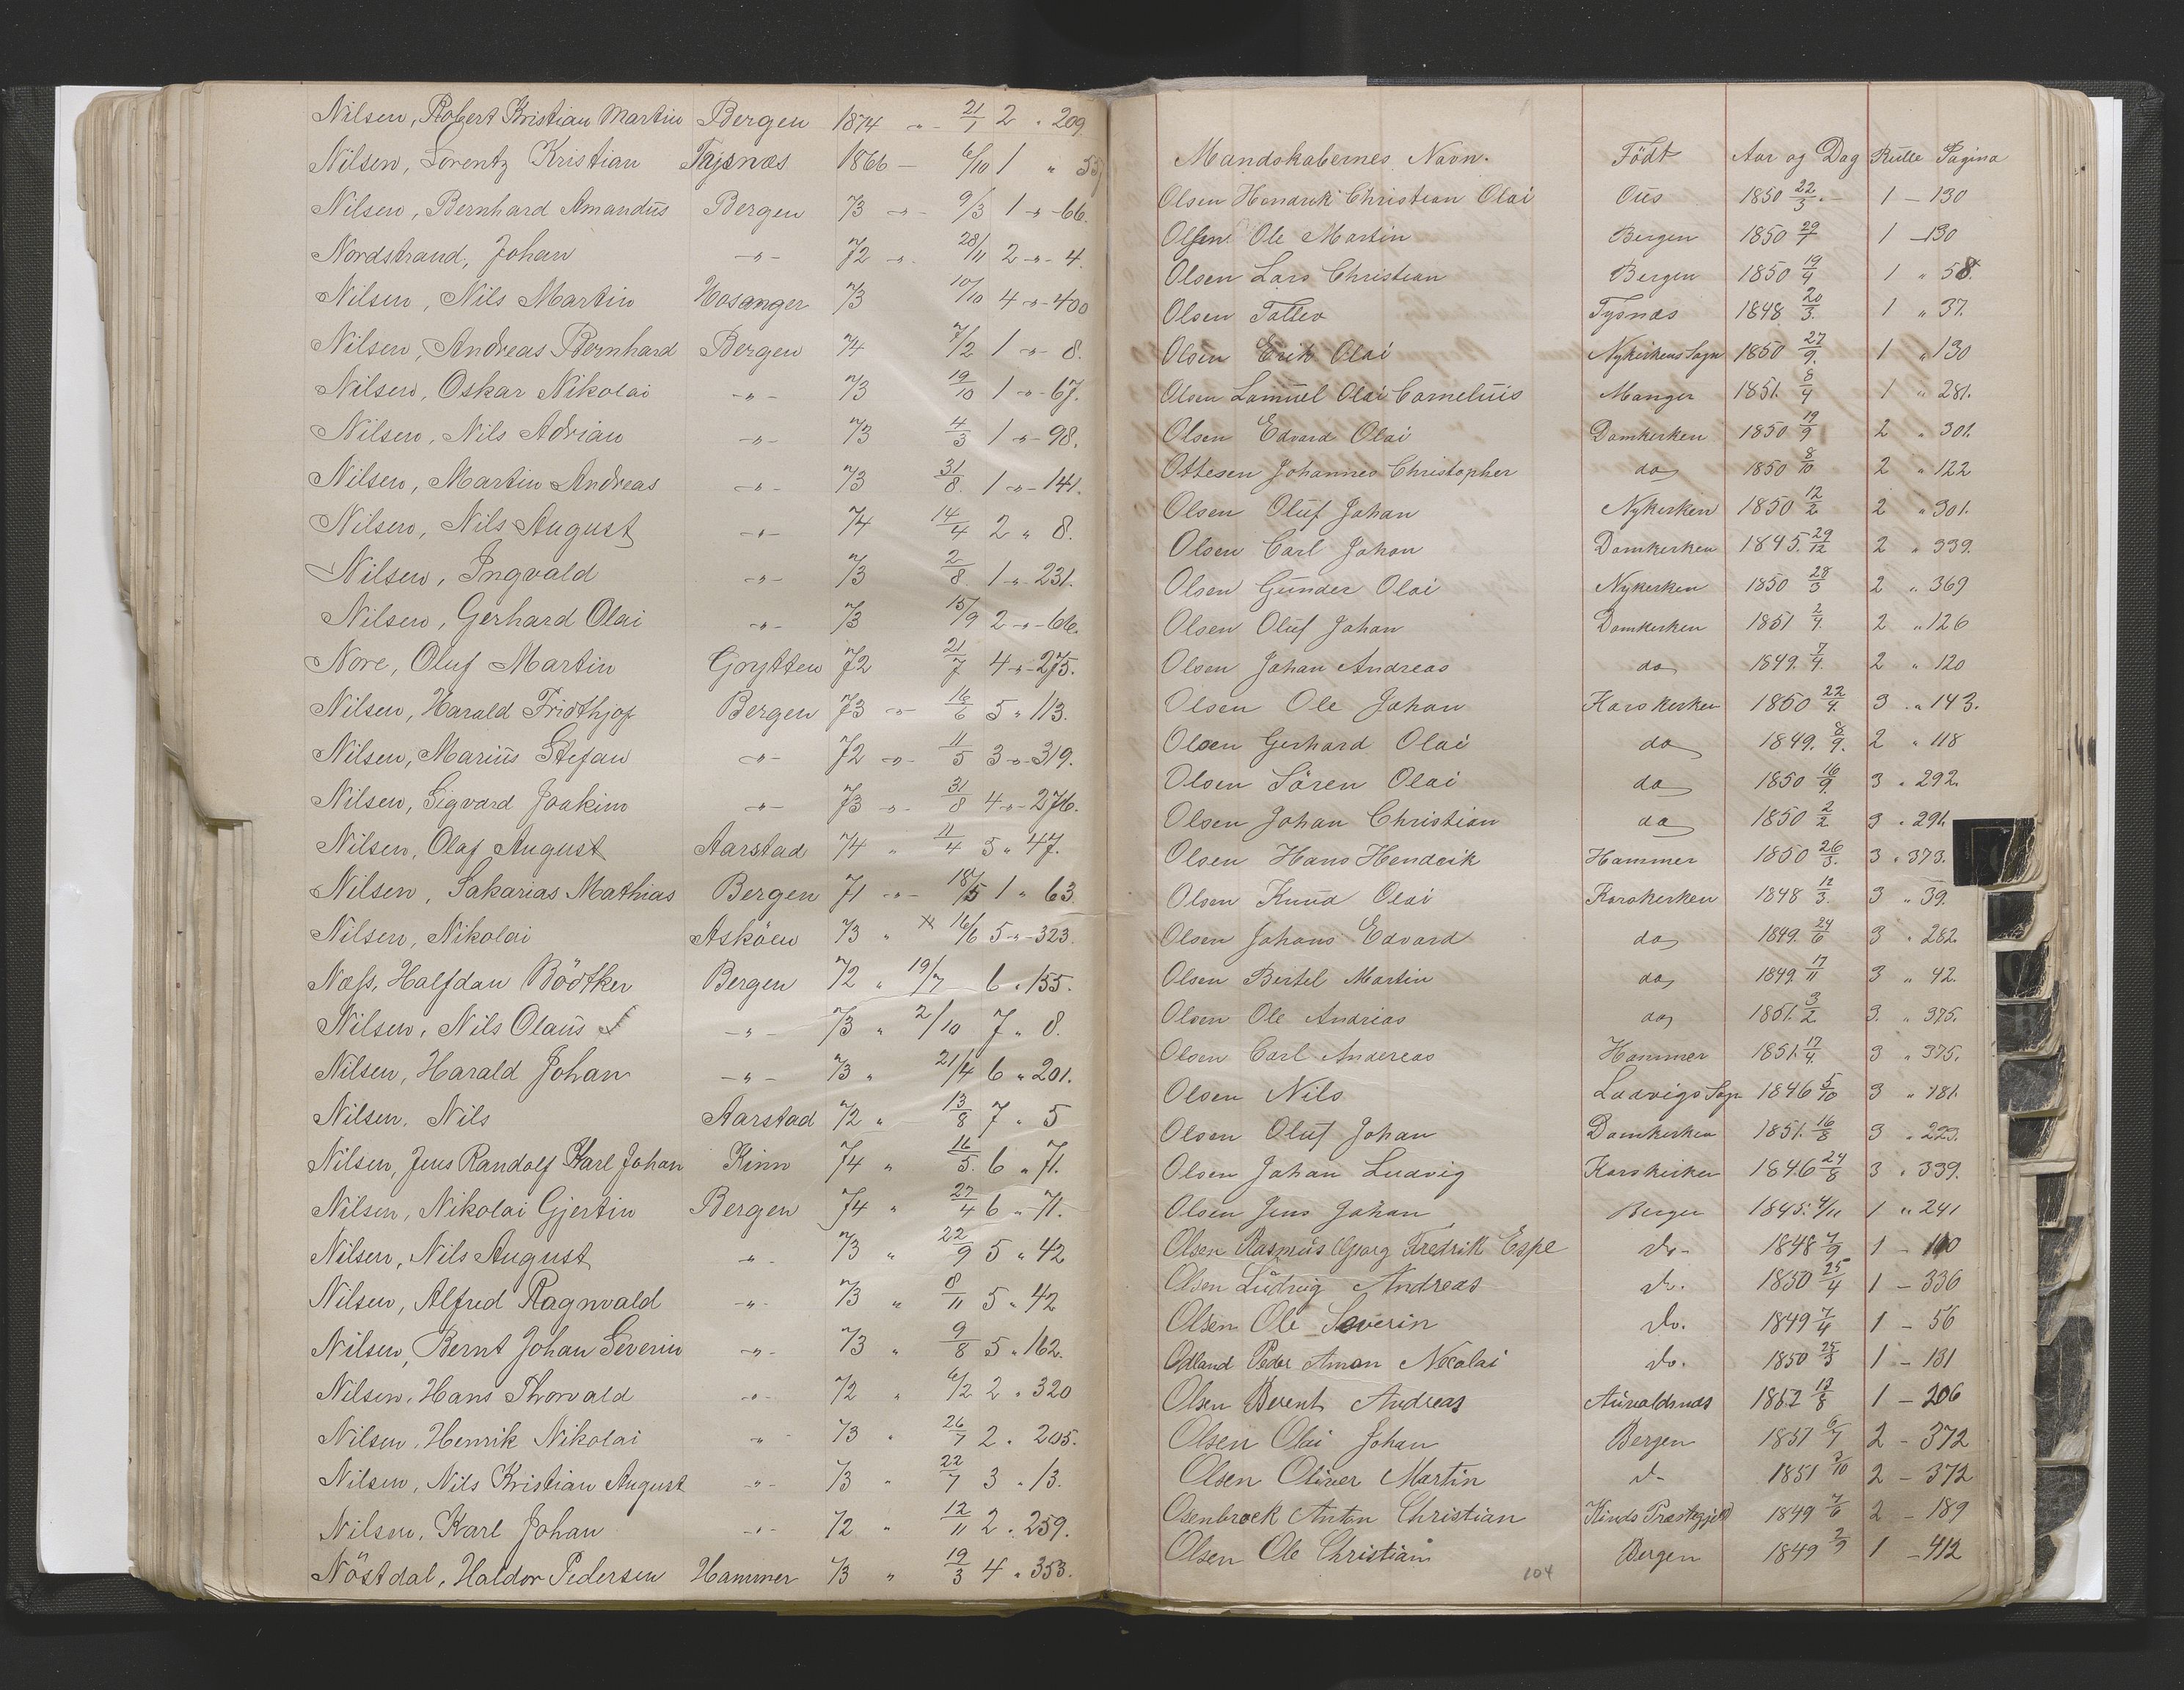 Nilsen, Robert Kristian Martin Bergen 1874 -"- 21/1 2 " 209.
Nilsen, Lorentz Kristian Tysnæs 1866 - 6/10 1 "
Nilsen, Bernhard Amandus Bergen 73 -"- 9/3 1 -"- 66.
Nordstrand, Johan -"- 72 -"- 28/11 2 -"- 4.
Nilsen, Nils Martin Hosanger 73 10/10 4 -"- 400
Nilsen, Andreas Bernhard Bergen 74 7/2 1 -"- 8.
Nilsen, Oskar Nikolai -"- 73 19/10 1 -"- 67.
Nilsen, Nils Adrian -"- 73 4/3 1 -"- 98.
Nilsen, Martin Andreas -"- 73 31/8. 1 -"- 141.
Nilsen, Nils August -"- 74 14/4 2 " 8.
Nilsen, Ingvald -"- 73 2/8. 1 -"- 231.
Nilsen, Gerhard Olai -"- 73 15/9 2 -"- 66.
Nore, Oluf Martin Grytten 72 21/7 4 -"- 275.
Nilsen, Harald Fridthjof Bergen 73 -"- 16/6 5 " 113.
Nilsen, Marius Stefan -"- 72 -"- 11/5 3 -"- 319.
Nilsen, Sigvard Joakim -"- 73 -"- 31/8 4 -"- 276.
Nilsen, Olaf August Aarstad 74 " 4/4 5 " 47.
Nilsen, Sakarias Mathias Bergen 71 -"- 18/5 1 " 63.
Nilsen, Nikolai Asköen 73 " × 16/6 5 -"- 323.
Næss, Halfdan Bödtker Bergen 72 " 19/7 6 " 155.
Nilsen, Nils Olaus -"- 73 " 2/10 7 " 8.
Nilsen, Harald Johan -"- 73 " 21/4 6 " 201.
Nilsen, Nils Aarstad 72 " 13/8 7 " 5
Nilsen, Jens Randolf Karl Johan Kinn 74 " 16/5. 6 " 71.
Nilsen, Nikolai Gjertin Bergen 74 " 27/4 6 " 71.
Nilsen, Nils August -"- 73 " 22/9 5 " 42
Nilsen, Alfred Ragnvald -"- 73 " 8/11 5 " 42
Nilsen, Bernt Johan Severin -"- 73 " 9/8 5 " 162.
Nilsen, Hans Thorvald -"- 72 " 6/2 2 " 320
Nilsen, Henrik Nikolai -"- 73 " 26/7 2 " 205.
Nilsen, Nils Kristian August -"- 73 " 22/7 3 " 13.
Nilsen, Karl Johan -"- 72 " 12/11 2 " 259.
Nöstdal, Haldor Pedersen Hammer 73 " 19/3 4 " 353.
Mandskabernes Navn. Födt Aar og Dag Rulle Pagina
Olsen Hendrik Christian Olai Ous 1850 22/3. - 1 - 130
Olsen Ole Martin Bergen 1850 29/7 1 - 130
Olsen Lars Christian Bergen 1850 19/4 1 " 58.
Olsen Tollev Tysnæs 1848 20/3. 1 " 37.
Olsen Erik Olai Nykirkens Sogn 1850 27/9. 1 " 130
Olsen Samuel Olai Cornelius Manger 1851. 8/4 1 " 281.
Olsen Edvard Olai Domkirken 1850 19/9 2 " 301.
Ottesen Johannes Christopher do 1850 8/10 2 " 122
Olsen Oluf Johan Nykirken 1850 12/2 2 " 301.
Olsen Carl Johan Domkirken 1845. 29/12 2 " 339.
Olsen Gunder Olai Nykirken 1850 28/3 2 " 369
Olsen Oluf Johan Domkirken 1851 2/4. 2 " 126
Olsen Johan Andreas do 1849. 7/4. 2 " 120
Olsen Ole Johan Korskirken 1850 22/4. 3 " 143.
Olsen Gerhard Olai do 1849. 8/9. 2 " 118
Olsen Sören Olai do 1850 16/9. 3 " 292.
Olsen Johan Christian do 1850 2/2 3 " 291.
Olsen Hans Hendrik Hammer 1850 26/3. 3 " 373.
Olsen Knud Olai Korskirken 1848 12/3. 3 " 39.
Olsen Johans Edvard do 1849. 24/6 3 " 282.
Olsen Bertel Martin do 1849. 17/11 3 " 42.
Olsen Ole Andrias do 1851. 3/2. 3. " 375.
Olsen Carl Andereas Hammer 1851. 17/4. 3 " 375.
Olsen Nils Ladvigs Sogn 1846 5/10 3 " 181.
Olsen Oluf Johan Domkirken 1851. 16/8 3 " 223.
Olsen Johan Ludvig Korskirken 1846 24/8 3 " 339.
Olsen Jens Johan Bergen 1845. 4/11 1 " 241
Olsen Rasmus Georg Fredrik Espe do - 1848 7/9 1 -
Olsen Ludvig Andreas do. 1850 25/4 1 - 336
Olsen Ole Severin do. 1849 7/4 1 - 56
Odland Peder Aman Nicolai do. 1850 25/3 1 - 131
Olsen Berent Andreas 1852 18/8 1 - 206
Olsen Olai Johan Bergen 1851 6/7 2 - 372
Olsen Oliver Martin do 1851 2 - 372
Osenbrock Anton Christian Kinds Præstegjeld 1849 7/6 2 - 189
Olsen Ole Christian Bergen 1849 2/9 1 - 412
104